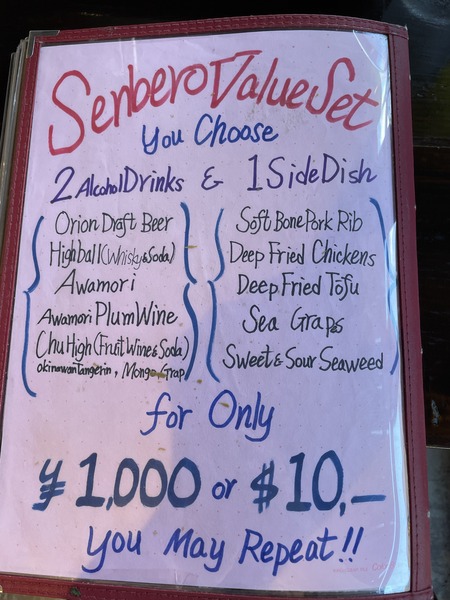 Senbero Value Set
You Choose
2 Alcohol Drinks & 1 Side Dish
Orion Draft Beer
Highball (Whisky & Soda)
Awamori
Awamori Plum Wine
Chu High (Fruit Wine & Soda)
Okinawan Tangerin, Mongo Grap
Soft Bone Pork Rib
Deep Fried Chickens
Deep Fried Tofu
Sea Graps
Sweet & Sour Seaweed
for Only
¥ 1,000 or $ 10,—
You May Repeat!!